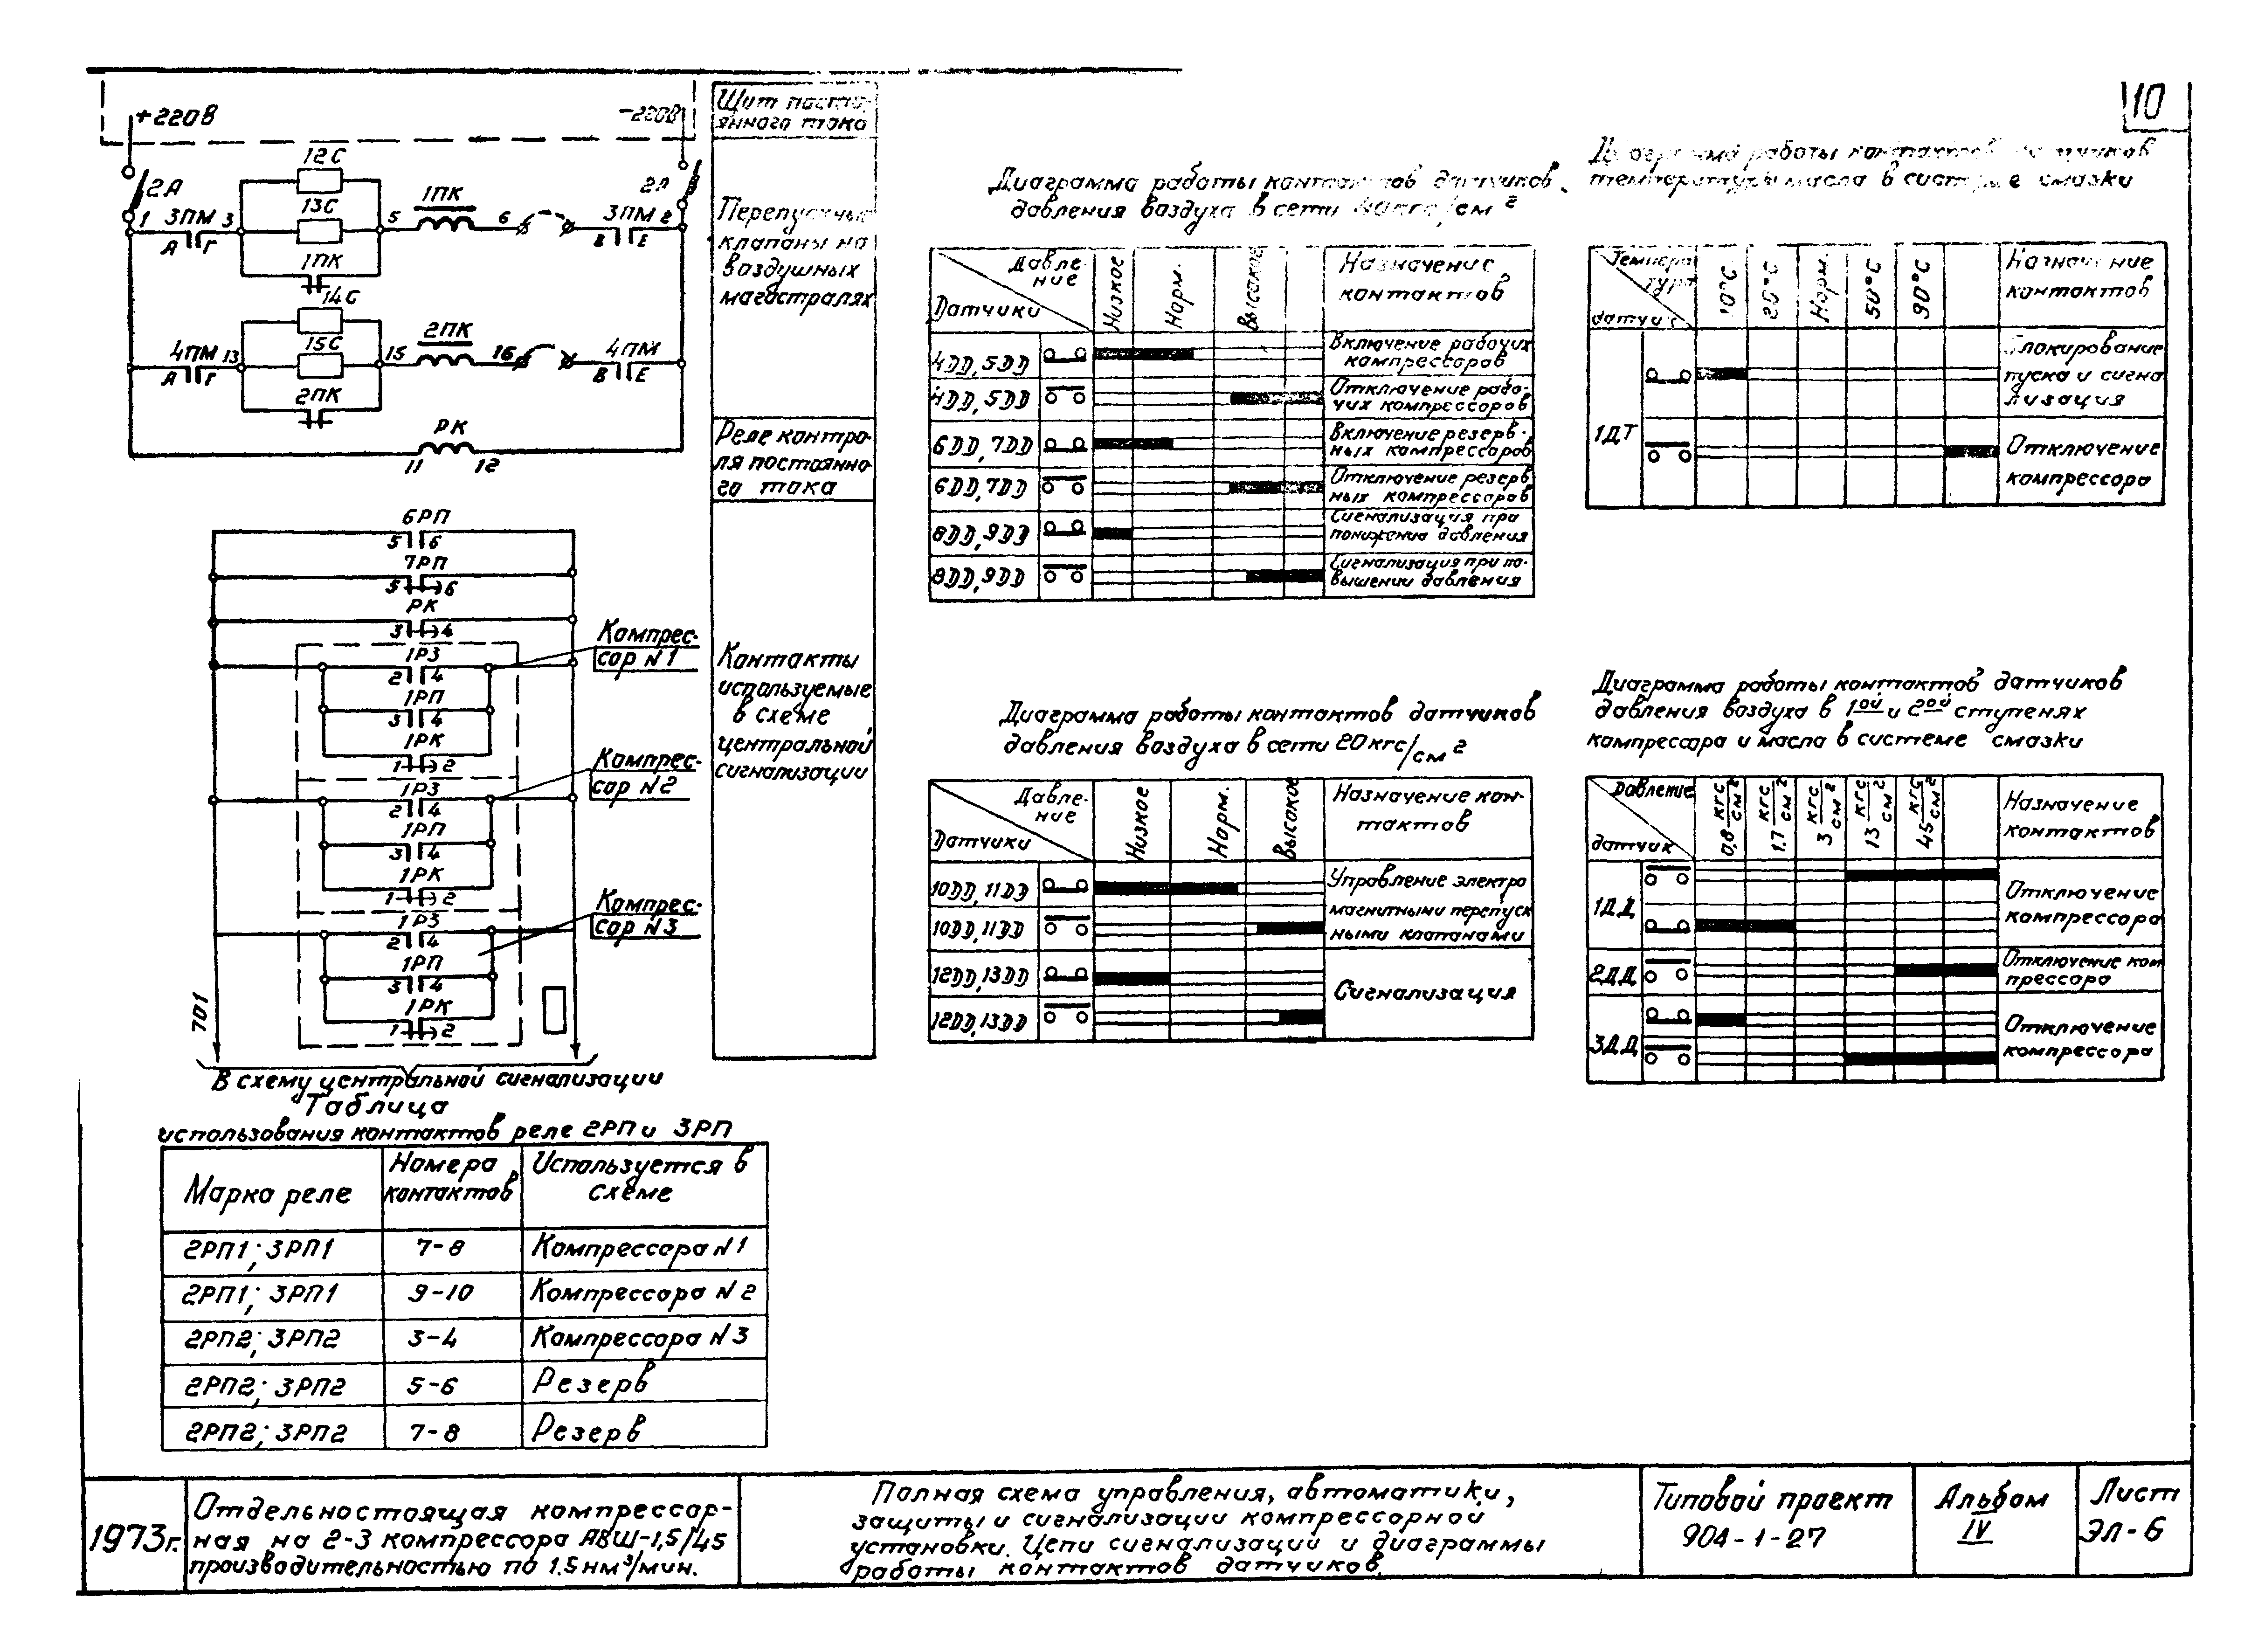 10
+220В
-220В
2А
2А
12С
13С
1ПК
14С
15С
2ПК
1 3ПМ 3
А Г
5 1ПК 6
3ПМ 2
В Е
4ПМ 13
А Г
15 2ПК 16
4ПМ
В Е
РК
11 12
Щит посто-
янного тока
Перепускные
клапаны на
воздушных
магистралях
Реле контро-
ля постоянно-
го тока
Контакты
используемые
в схеме
центральной
сигнализации
6РП
5 6
7РП
5 6
РК
3 4
1РЗ
2 4
1РП
3 4
1РК
1 2
Компрес-
сор N1
1РЗ
2 4
1РП
3 4
1РК
1 2
Компрес-
сор N2
1РЗ
2 4
1РП
3 4
1РК
1 2
Компрес-
сор N3
701
В схему центральной сигнализации
Таблица
использования контактов реле 2РП и 3РП
Марка реле
Номера
контактов
Используется в
схеме
2РП1; 3РП1 7-8 Компрессора N1
2РП1; 3РП1 9-10 Компрессора N2
2РП2; 3РП2 3-4 Компрессора N3
2РП2; 3РП2 5-6 Резерв
2РП2; 3РП2 7-8 Резерв
Диаграмма работы контактов датчиков
давления воздуха в сети 40кгс/см²
Давле-
ние
Датчики
Низкое
Норм.
Высокое
Назначение
контактов
4ДД, 5ДД
Включение рабочих
компрессоров
4ДД, 5ДД
Отключение рабо-
чих компрессоров
6ДД, 7ДД
Включение резерв-
ных компрессоров
6ДД, 7ДД
Отключение резерв
ных компрессоров
8ДД, 9ДД
Сигнализация при
понижении давления
8ДД, 9ДД
Сигнализация при по-
вышении давления
Диаграмма работы контактов датчиков
давления воздуха в сети 20кгс/см²
Давле-
ние
Датчики
Низкое
Норм.
Высокое
Назначение кон-
тактов
10ДД, 11ДД
10ДД, 11ДД
Управление электро
магнитными перепуск
ными клапанами
12ДД, 13ДД
12ДД, 13ДД
Сигнализация
Диаграмма работы контактов датчиков
температуры масла в системе смазки
Темпера
тура
датчик
10°С
20°С
Норм.
50°С
90°С
Назначение
контактов
1ДТ
Блокирование
пуска и сигна
лизация
Отключение
компрессора
Диаграмма работы контактов датчиков
давления воздуха в 1ой и 2ой ступенях
компрессора и масла в системе смазки
Давление
датчик
0,8 кгс/см²
1.7 кгс/см²
3 кгс/см²
13 кгс/см²
45 кгс/см²
Назначение
контактов
1ДД
Отключение
компрессора
2ДД
Отключение ком
прессора
3ДД
Отключение
компрессора
1973г.
Отдельностоящая компрессор-
ная на 2-3 компрессора АВШ-1,5/45
производительностью по 1.5нм³/мин.
Полная схема управления, автоматики,
защиты и сигнализации компрессорной
установки. Цепи сигнализации и диаграммы
работы контактов датчиков.
Типовой проект
904-1-27
Альбом
IV
Лист
ЭЛ-6